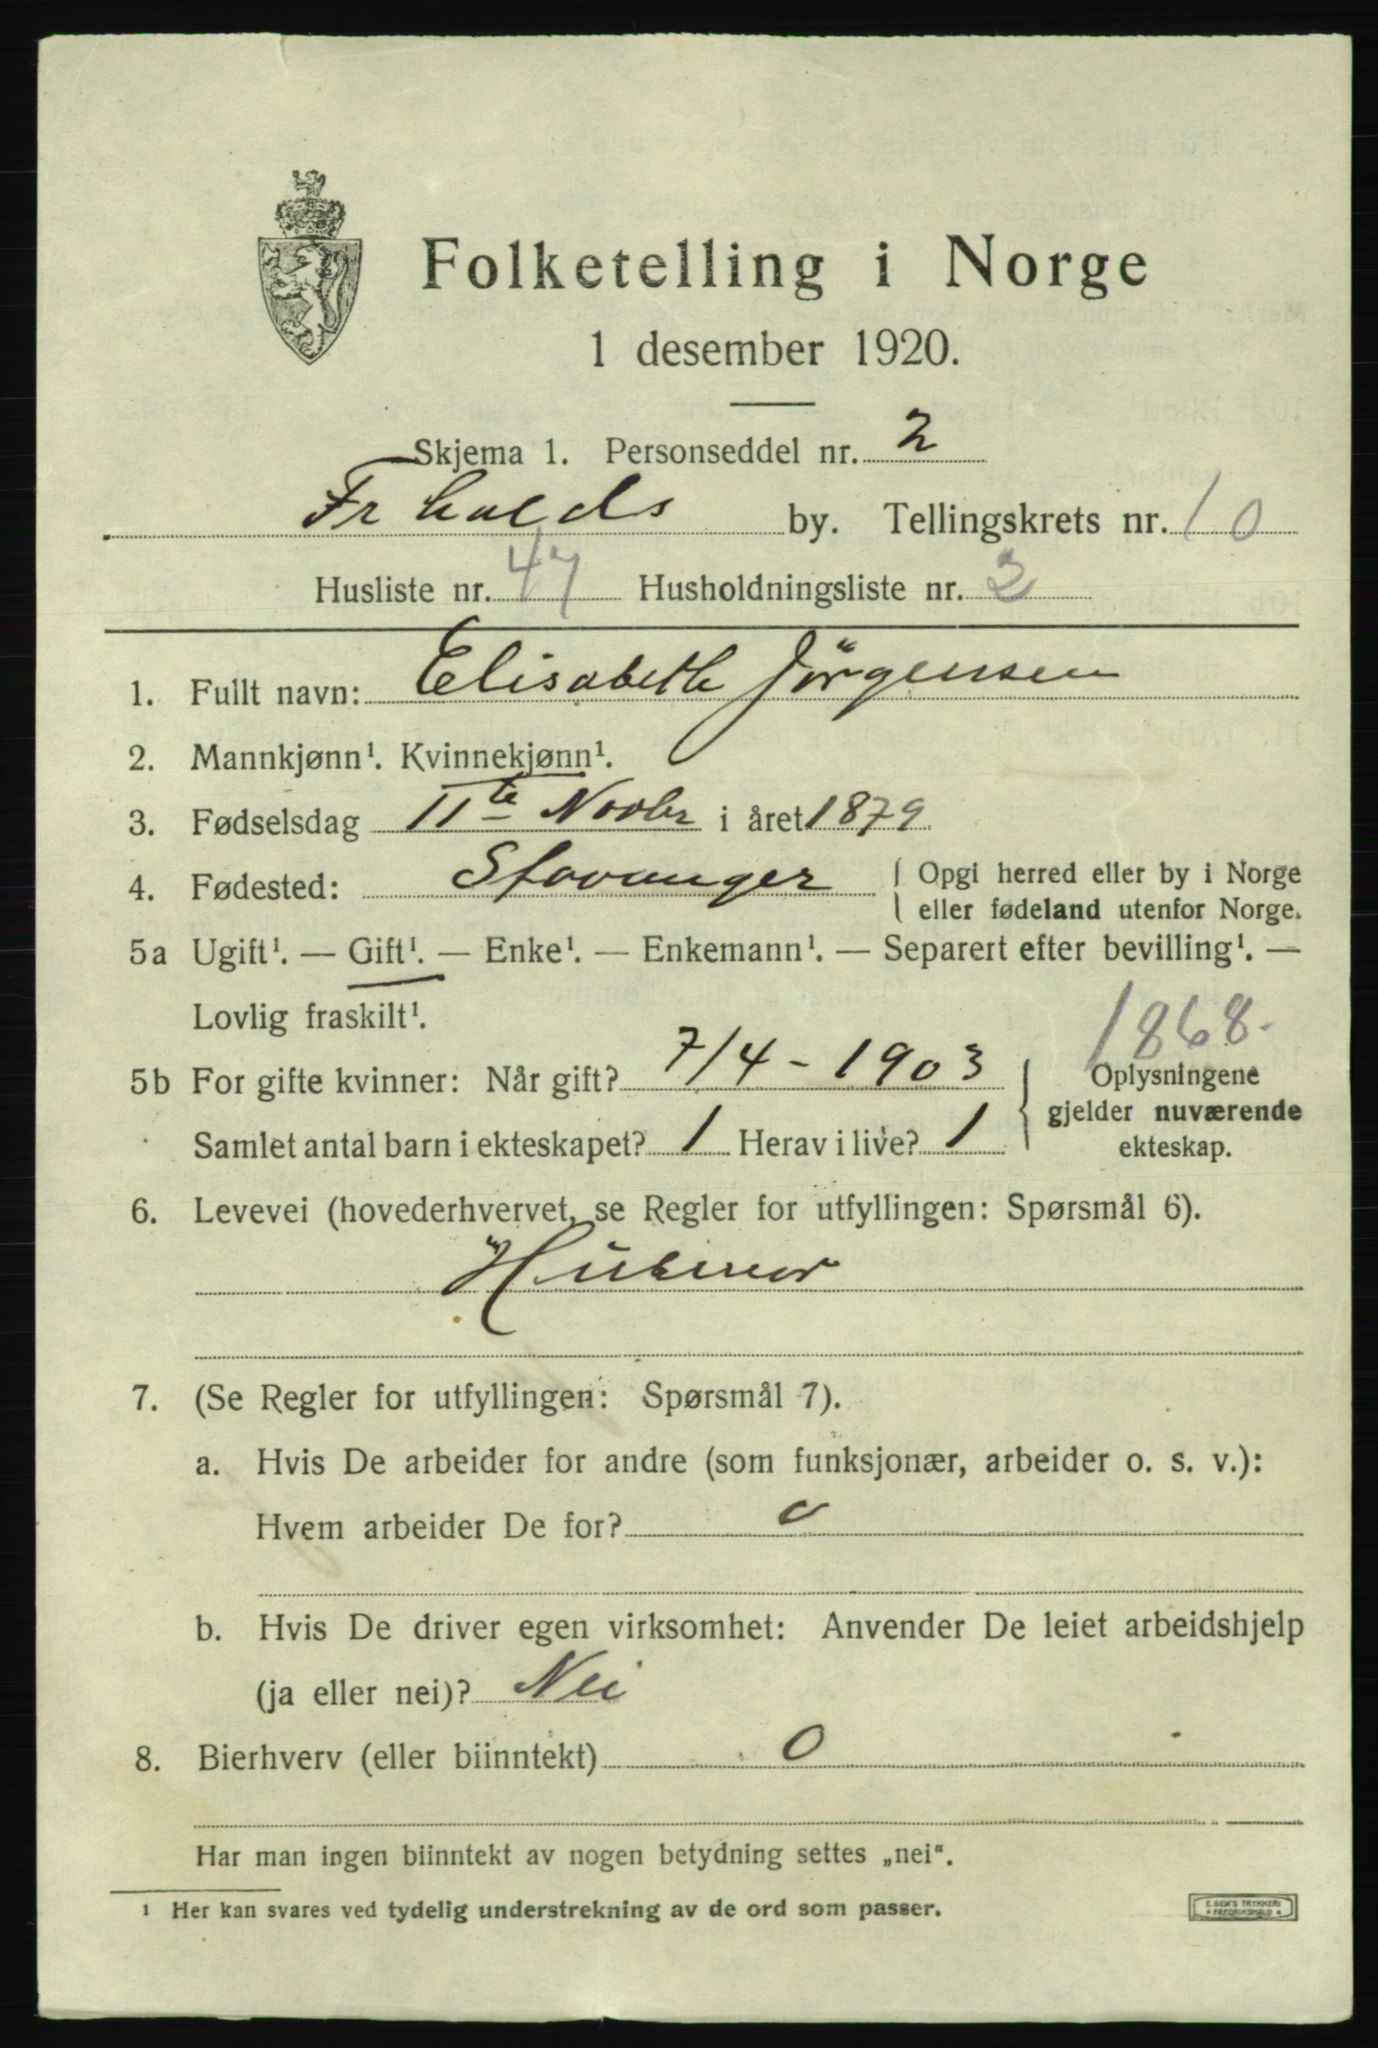 Folketelling i Norge
1 desember 1920.
Skjema 1. Personseddel nr. 2
Frhalds by. Tellingskrets nr. 10
Husliste nr. 47 Husholdningsliste nr. 2
1. Fullt navn: Elisabeth Jörgensen
2. Mannkjønn¹. Kvinnekjønn¹.
3. Fødselsdag 11te Novbr i året 1879
4. Fødested: Stavanger { Opgi herred eller by i Norge
eller fødeland utenfor Norge.
5a Ugift¹. — Gift¹. — Enke¹. — Enkemann¹. — Separert efter bevilling¹. —
Lovlig fraskilt¹.
1868-
5b For gifte kvinner: Når gift? 7/4 - 1903 { Oplysningene
gjelder nuværende
Samlet antal barn i ekteskapet? 1 Herav i live? 1 ekteskap.
6. Levevei (hovederhvervet, se Regler for utfyllingen: Spørsmål 6).
Husmor
7. (Se Regler for utfyllingen: Spørsmål 7).
a. Hvis De arbeider for andre (som funksjonær, arbeider o. s. v.):
Hvem arbeider De for? 0
b. Hvis De driver egen virksomhet: Anvender De leiet arbeidshjelp
(ja eller nei)? Nei
8. Bierhverv (eller biinntekt) 0
Har man ingen biinntekt av nogen betydning settes „nei“.
¹ Her kan svares ved tydelig understrekning av de ord som passer.
E. SEM'S TRYKKERI
FREDRIKSHALD